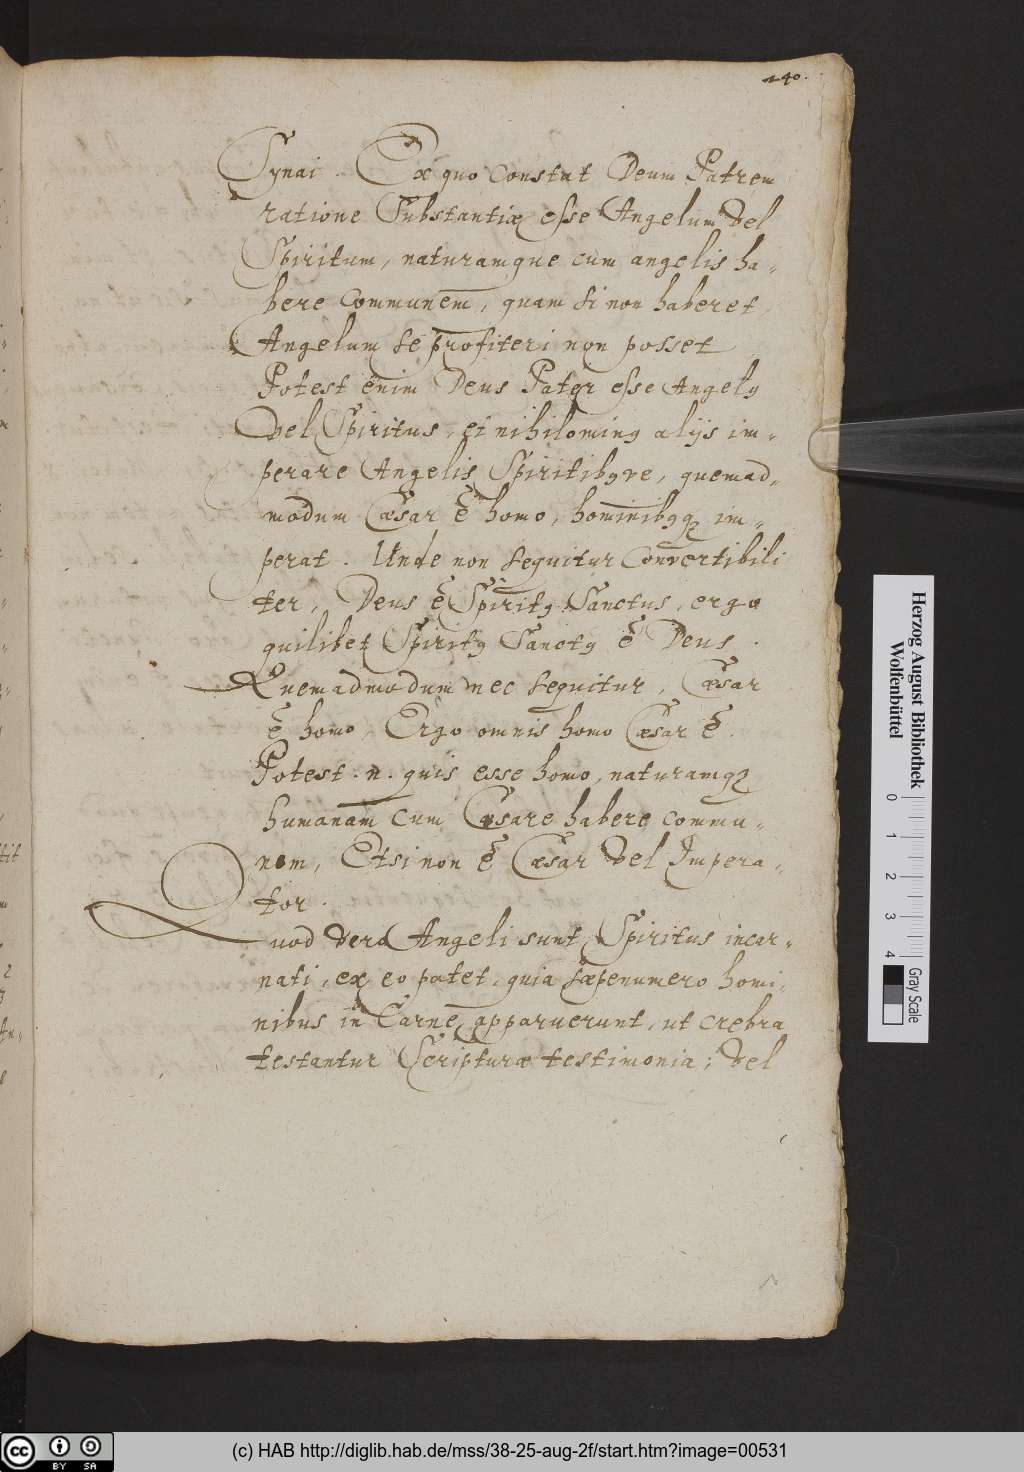 240.
Synai. Ex quo constat Deum Patrem
ratione Substantiæ esse Angelum vel
Spiritum, naturamque cum angelis ha-
bere communem, quam si non haberet,
Angelum se profiteri non posset
Potest enim Deus Pater esse Angelꝰ
vel Spiritus, et nihilominꝰ alijs im-
perare Angelis Spiritibꝰve, quemad-
modum Cæsar ē homo, hominibꝰqꝫ im-
perat. Unde non sequitur convertibili
ter, Deus ē Spiritꝰ Sanctus, ergo
quilibet Spiritꝰ Sanctꝰ ē Deus.
Quemadmodum nec sequitur, Cæsar
ē homo, Ergo omnis homo Cæsar ē.
Potest .n. quis esse homo, naturamqꝫ
humanam cum Cæsare habere commu-
nem, Etsi non ē Cæsar vel Impera-
tor.
Quod vero Angeli sunt Spiritus incar-
nati, ex eo patet, quia sæpenumero homi-
nibus in Carne apparuerunt, ut crebra
testantur Scripturæ testimonia; vel
Herzog August Bibliothek
Wolfenbüttel
0 1 2 3 4
Gray Scale
cc BY SA
(c) HAB http://diglib.hab.de/mss/38-25-aug-2f/start.htm?image=00531